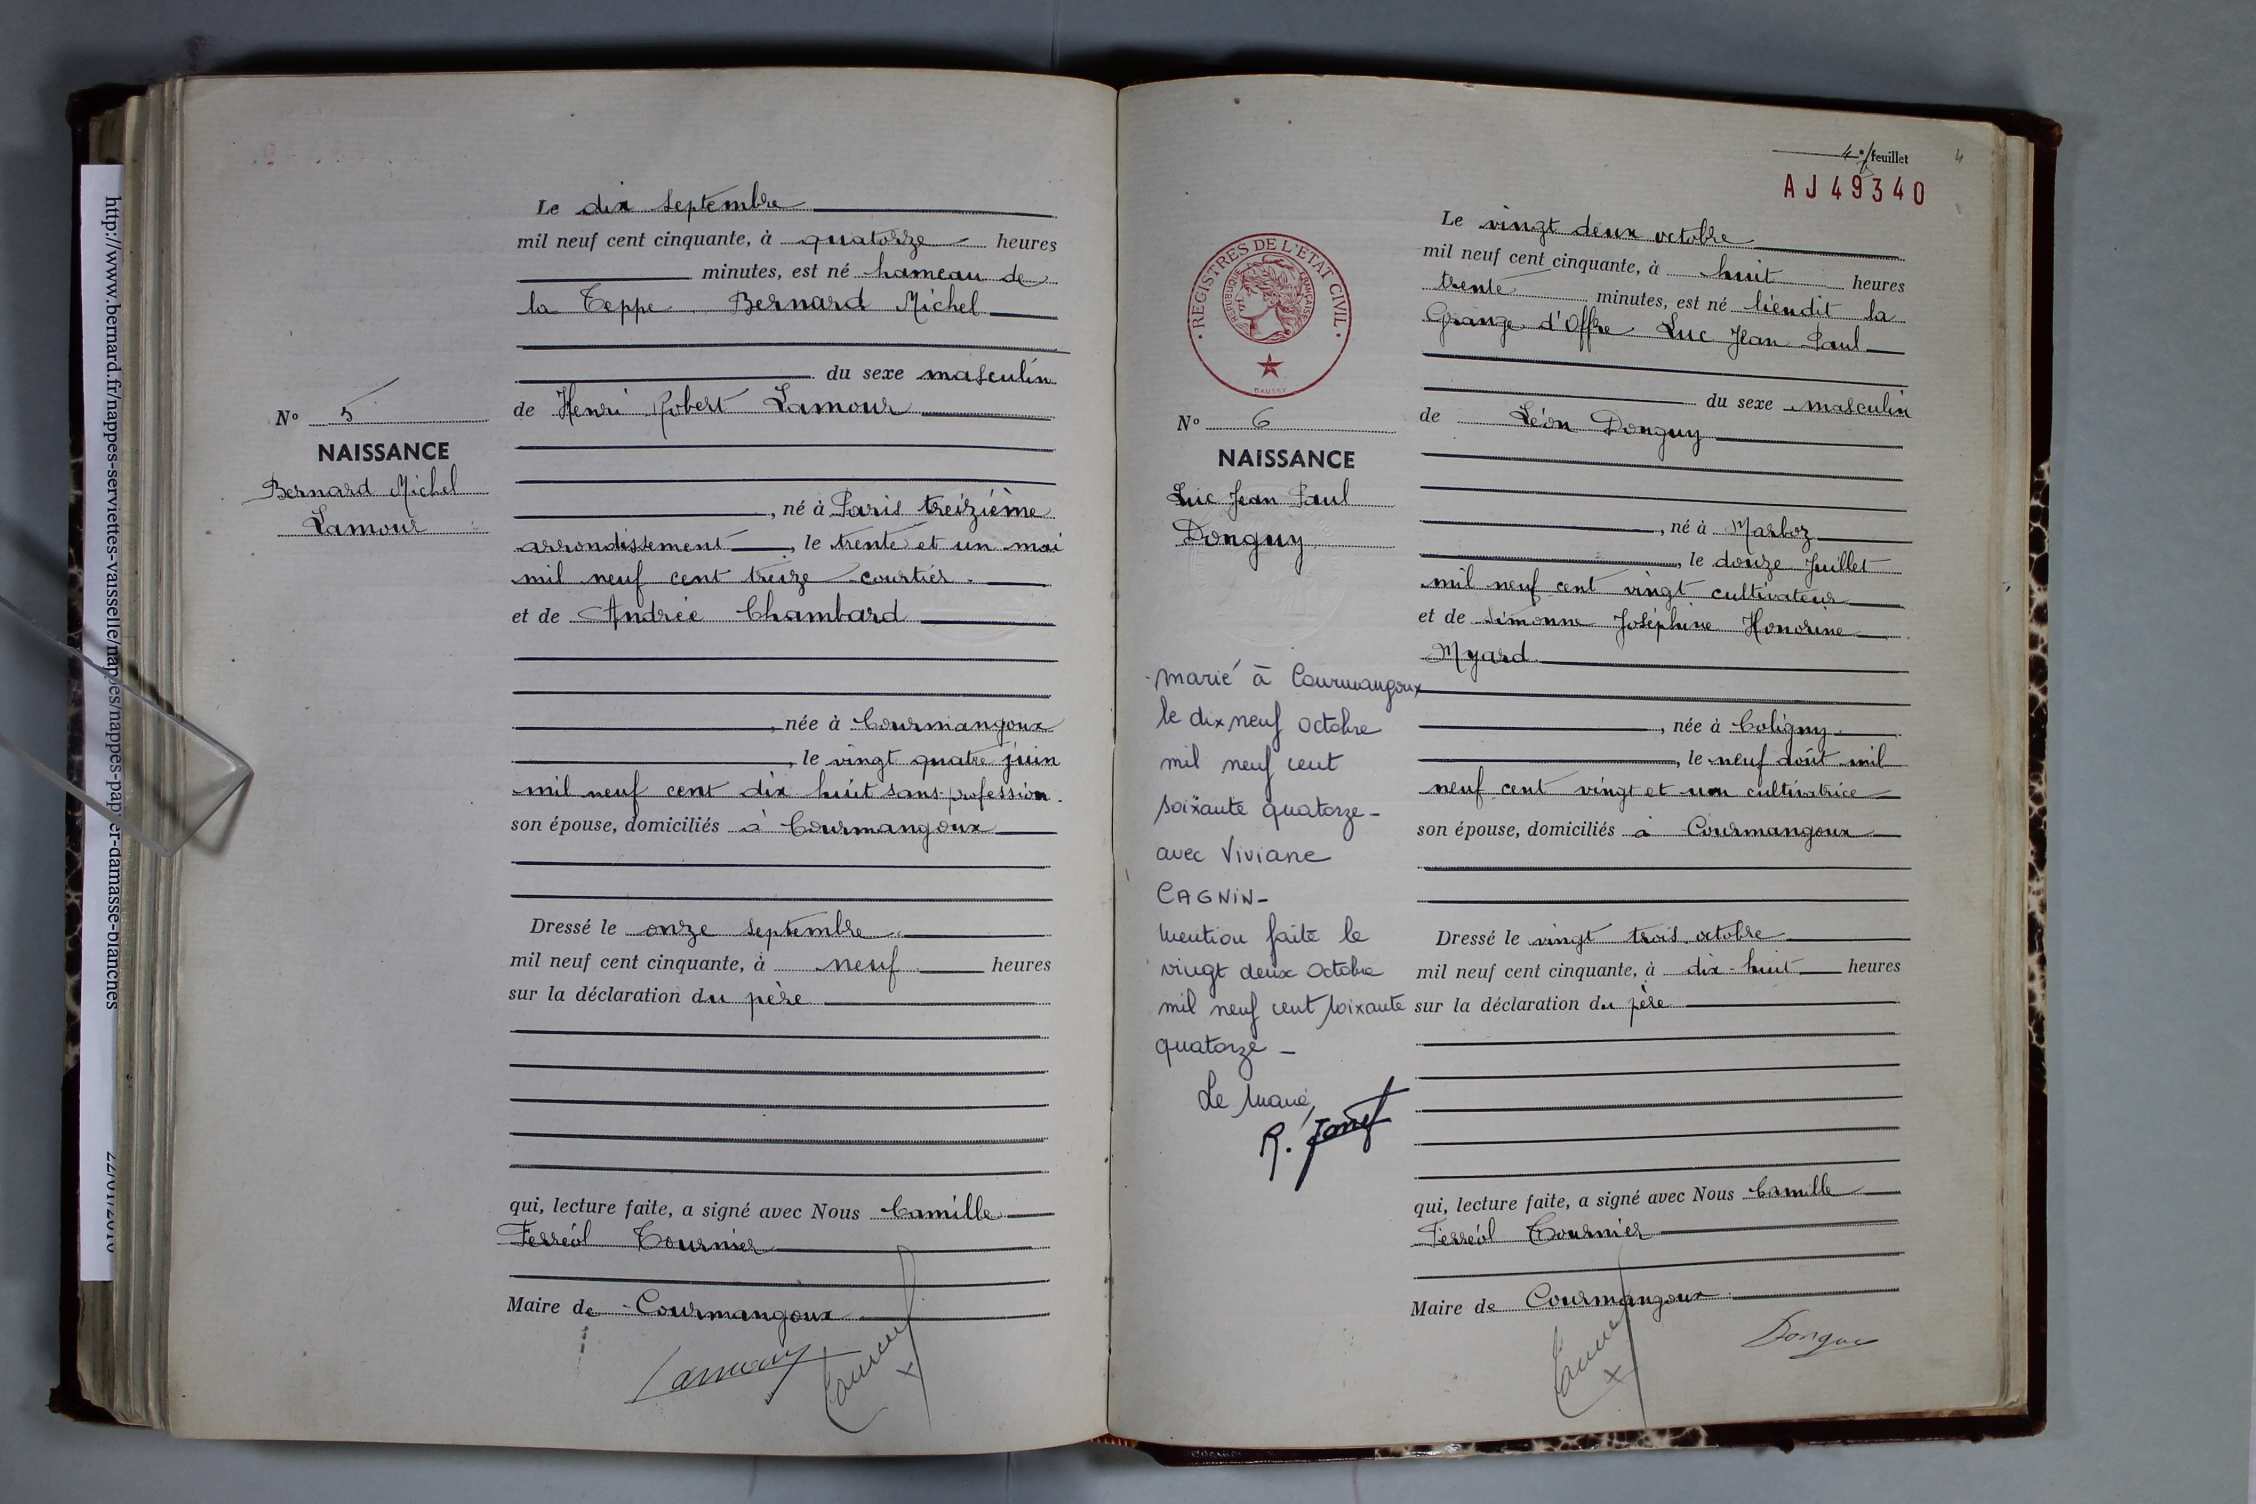 http://www.bernard.fr/nappes-serviettes-vaisselle/nappes/nappes-papier-damasse-blanches
22/01/2016
Le dix septembre
mil neuf cent cinquante, à quatorze heures
minutes, est né hameau de
la Teppe Bernard Michel
du sexe masculin
N° 5
NAISSANCE
Bernard Michel
Lamour
de Henri Robert Lamour
, né à Paris treizième
arrondissement, le trente et un mai
mil neuf cent treize courtier
et de Andrée Chambard
, née à Courmangoux
, le vingt quatre juin
mil neuf cent dix huit sans profession
son épouse, domiciliés à Courmangoux
Dressé le onze septembre
mil neuf cent cinquante, à neuf heures
sur la déclaration du père
qui, lecture faite, a signé avec Nous Camille
Ferréol Tournier
Maire de Courmangoux
Lamour
4e feuillet
4
AJ49340
REGISTRES DE L'ETAT CIVIL
REPUBLIQUE FRANÇAISE
Le vingt deux octobre
mil neuf cent cinquante, à huit heures
trente minutes, est né lieudit la
Grange d'Offre Luc Jean Paul
du sexe masculin
N° 6
NAISSANCE
Luc Jean Paul
Donguy
de Léon Donguy
, né à Marboz
, le douze Juillet
mil neuf cent vingt cultivateur
et de Simonne Joséphine Honorine
Myard
, née à Coligny
, le neuf août mil
neuf cent vingt et un cultivatrice
son épouse, domiciliés à Courmangoux
Dressé le vingt trois octobre
mil neuf cent cinquante, à dix-huit heures
sur la déclaration du père
qui, lecture faite, a signé avec Nous Camille
Ferréol Tournier
Maire de Courmangoux
Donguy
marié à Courmangoux
le dix neuf octobre
mil neuf cent
soixante quatorze -
avec Viviane
CAGNIN -
Mention faite le
vingt deux octobre
mil neuf cent soixante
quatorze -
Le Maire,